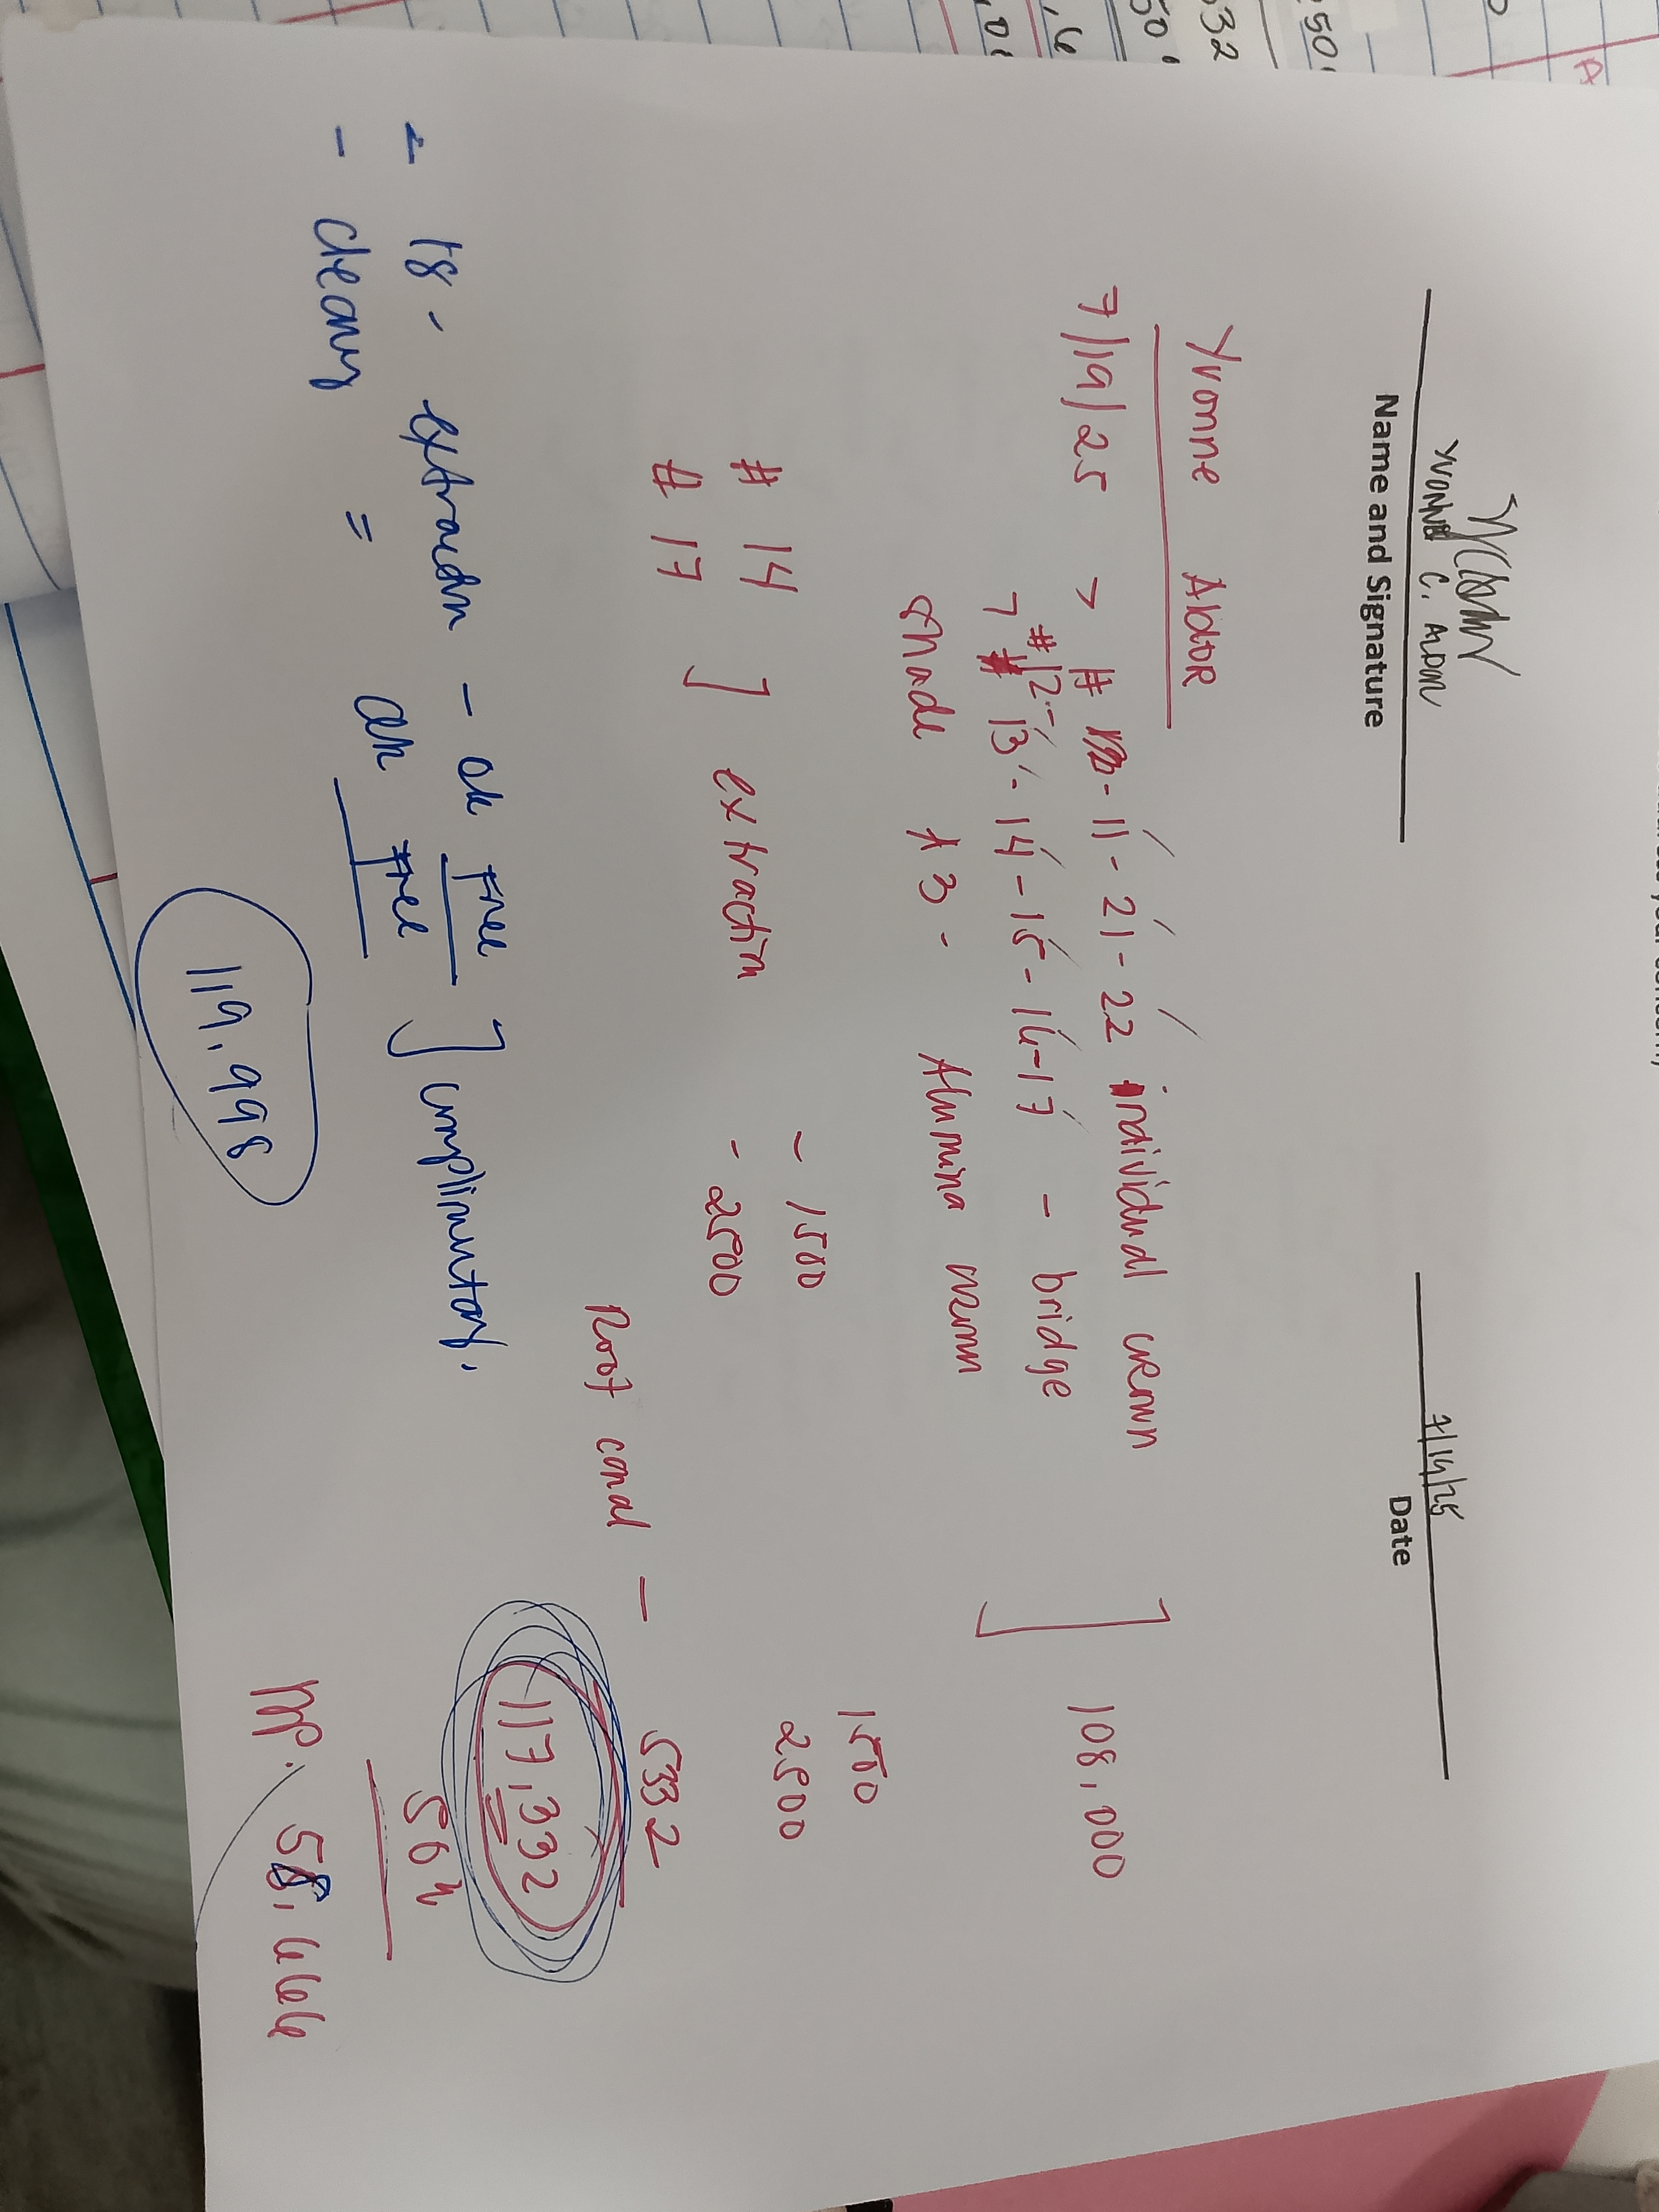 YVONNE C. ALDOR 7/19/25
Name and Signature Date
Yvonne AldoR
7/19/25 > # - 11 - 21 - 22 individual crown 108,000
#12 -
> # 13 - 14 - 15 - 16 - 17 - bridge
shade A3 - Alumina crown
# 14 ] extraction - 1500 1500
# 17 - 2500 2500
Root canal - 5332
117,332
- 18 - extraction - ok free ] complimentary.
- cleang = ok free
50%
DP. 58,666
119,998
50
,6
50
32
50
A